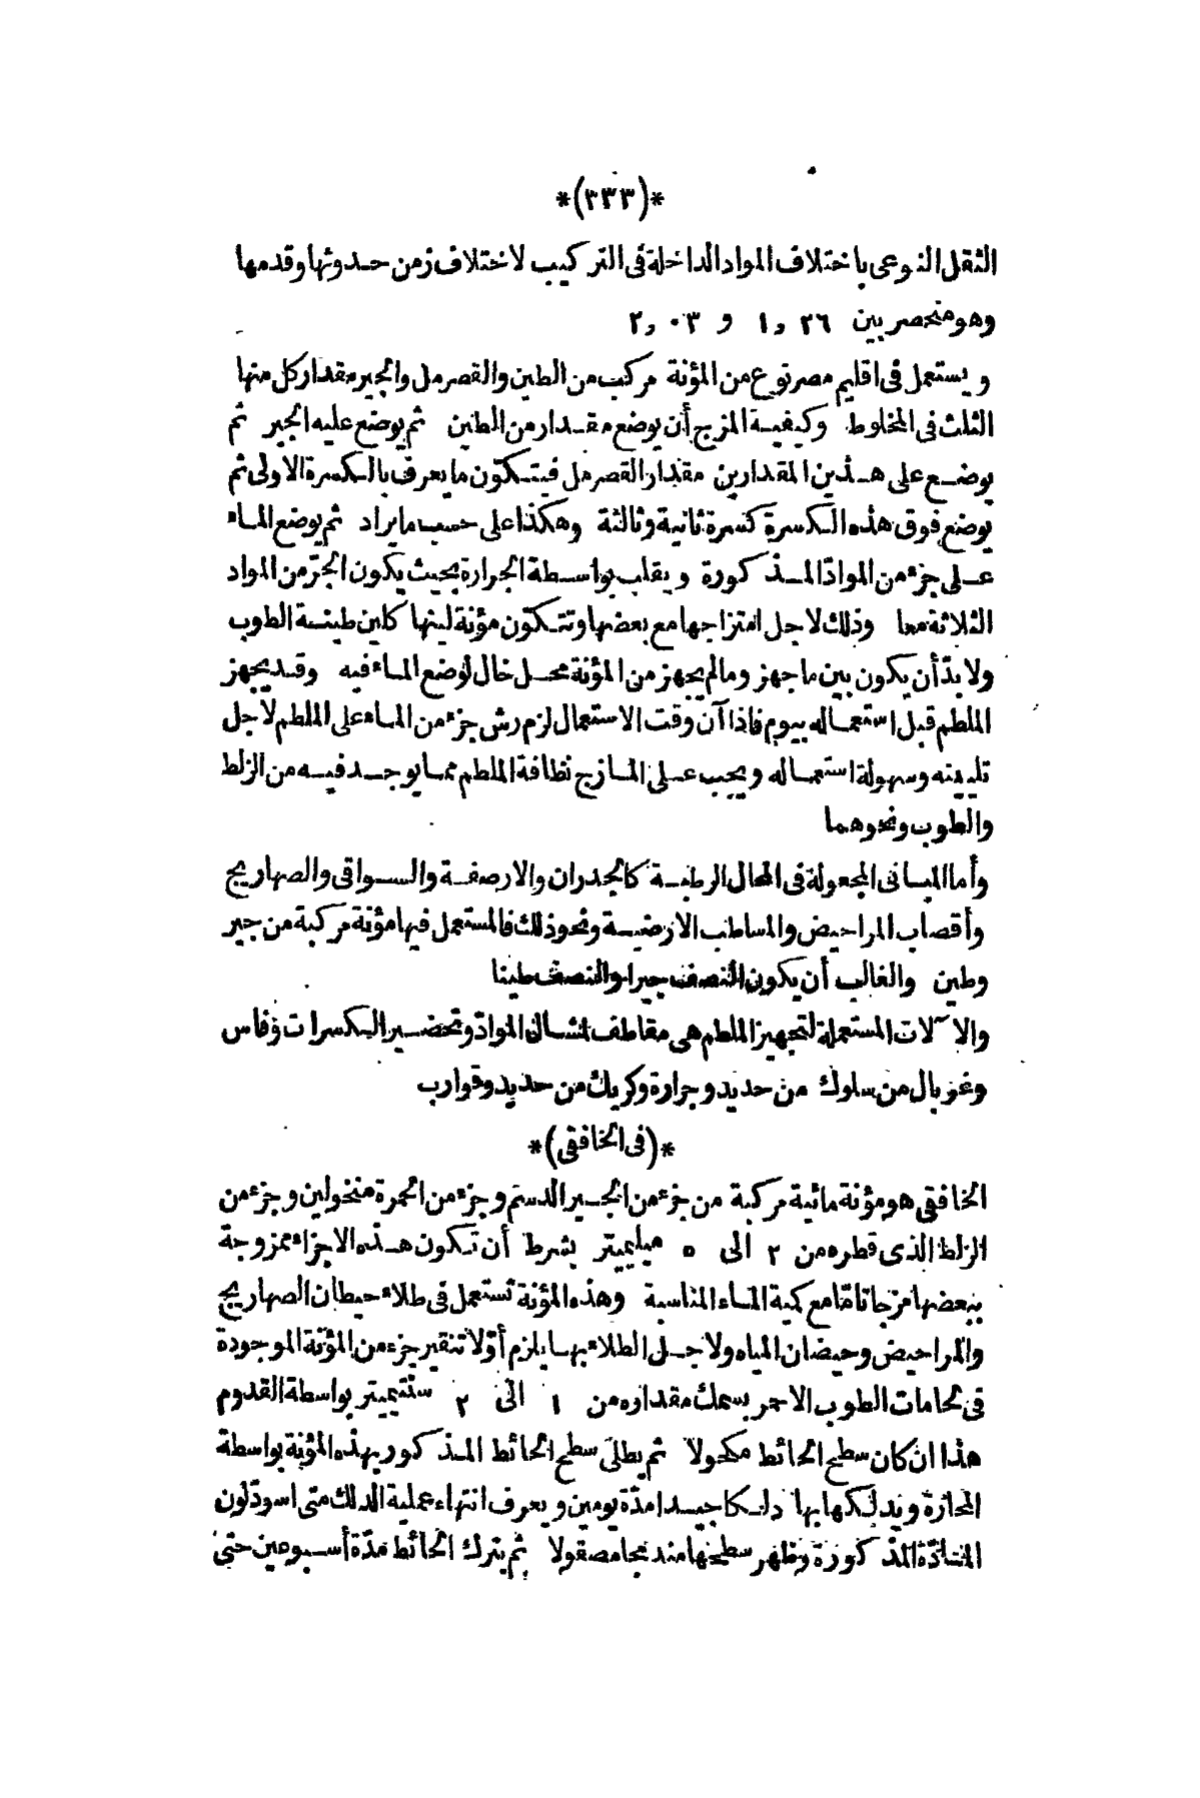 *(٣٣٣)*
الثقل النوعى باختلاف المواد الداخلة فى التركيب لاختلاف زمن حدوثها وقدمها
وهو منحصر بين ١,٢٦ و ٢,٠٣
ويستعمل فى اقليم مصر نوع من المؤنة مركب من الطين والقصرمل والجير مقدار كل منها
الثلث فى المخلوط وكيفية المزج أن يوضع مقدار من الطين ثم يوضع عليه الجير ثم
يوضع على هذين المقدارين مقدار القصرمل فيتكوّن ما يعرف بالكسرة الاولى ثم
يوضع فوق هذه الكسرة كسرة ثانية وثالثة وهكذا على حسب ما يراد ثم يوضع الماء
على جزء من الموادّ المذكورة ويقلب بواسطة الجرارة بحيث يكون الجرّ من المواد
الثلاثة معا وذلك لاجل امتزاجها مع بعضها وتتكوّن مؤنة لينها كلين طينة الطوب
ولابدّ أن يكون بين ما جهز وما لم يجهز من المؤنة محل خال لوضع الماء فيه وقد يجهز
الملطم قبل استعماله بيوم فاذا آن وقت الاستعمال لزم رش جزء من الماء على الملطم لاجل
تليينه وسهولة استعماله ويجب على المازج نظافة الملطم مما يوجد فيه من الزلط
والطوب ونحوهما
وأما المبانى المجعولة فى المحال الرطبة كالجدران والارصفة والسواقى والصهاريج
وأقصاب المراحيض والمساطب الارضية ونحو ذلك فالمستعمل فيها مؤنة مركبة من جير
وطين والغالب أن يكون النصف جيرا والنصف طينا
والآلات المستعملة لتجهيز الملطم هى مقاطف لشال الموادّ وتحضير الكسرات وفاس
وغربال من سلوك من حديد وجرارة وكريك من حديد وقوارب
*(فى الخافقى)*
الخافقى هو مؤنة مائية مركبة من جزء من الجير الدسم وجزء من الحمرة منخولين وجزء من
الزلط الذى قطره من ٢ الى ٥ ميليميتر بشرط أن تكون هذه الاجزاء ممزوجة
ببعضها مزجا تامّا مع كمية الماء المناسبة وهذه المؤنة تستعمل فى طلاء حيطان الصهاريج
والمراحيض وحيضان المياه ولاجل الطلاء بها يلزم أوّلا تنقير جزء من المؤنة الموجودة
فى لحامات الطوب الاحمر بسمك مقداره من ١ الى ٢ سنتيميتر بواسطة القدوم
هذا ان كان سطح الحائط مكحولا ثم يطلى سطح الحائط المذكور بهذه المؤنة بواسطة
المحارة ويدلكها بها دلكا جيدا مدّة يومين ويعرف انتهاء عملية الدلك متى اسودّ لون
المادّة المذكورة وظهر سطحها مندمجا مصقولا ثم يترك الحائط مدّة أسبوعين حتى